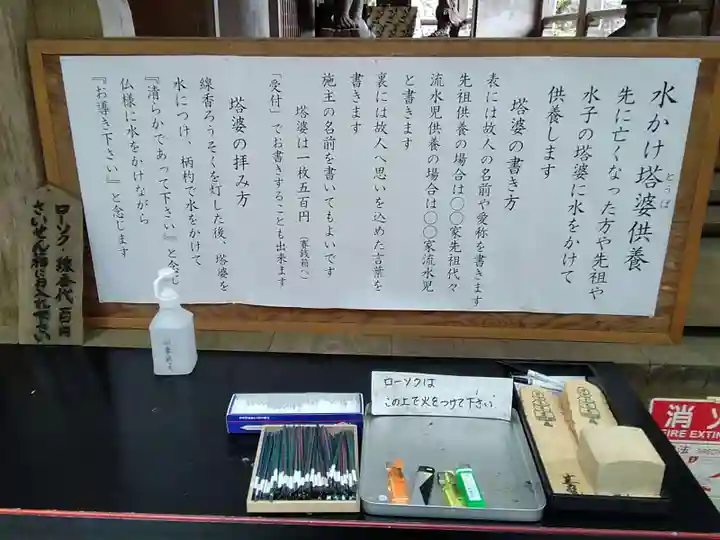 水かけ塔婆供養
とうば
先に亡くなった方や先祖や
水子の塔婆に水をかけて
供養します
塔婆の書き方
表には故人の名前や愛称を書きます
先祖供養の場合は〇〇家先祖代々
流水児供養の場合は〇〇家流水児
と書きます
裏には故人へ思いを込めた言葉を
書きます
施主の名前を書いてもよいです
塔婆は一枚五百円(賽銭箱へ)
「受付」でお書きすることも出来ます
塔婆の拝み方
線香ろうそくを灯した後、塔婆を
水につけ、柄杓で水をかけて
『清らかであって下さい』と念じ
仏様に水をかけながら
『お導き下さい』と念じます
ローソク・線香代一百円
さいせん箱にお入れ下さい
ローソクは
この上で火をつけて下さい
消火
FIRE EXTIN